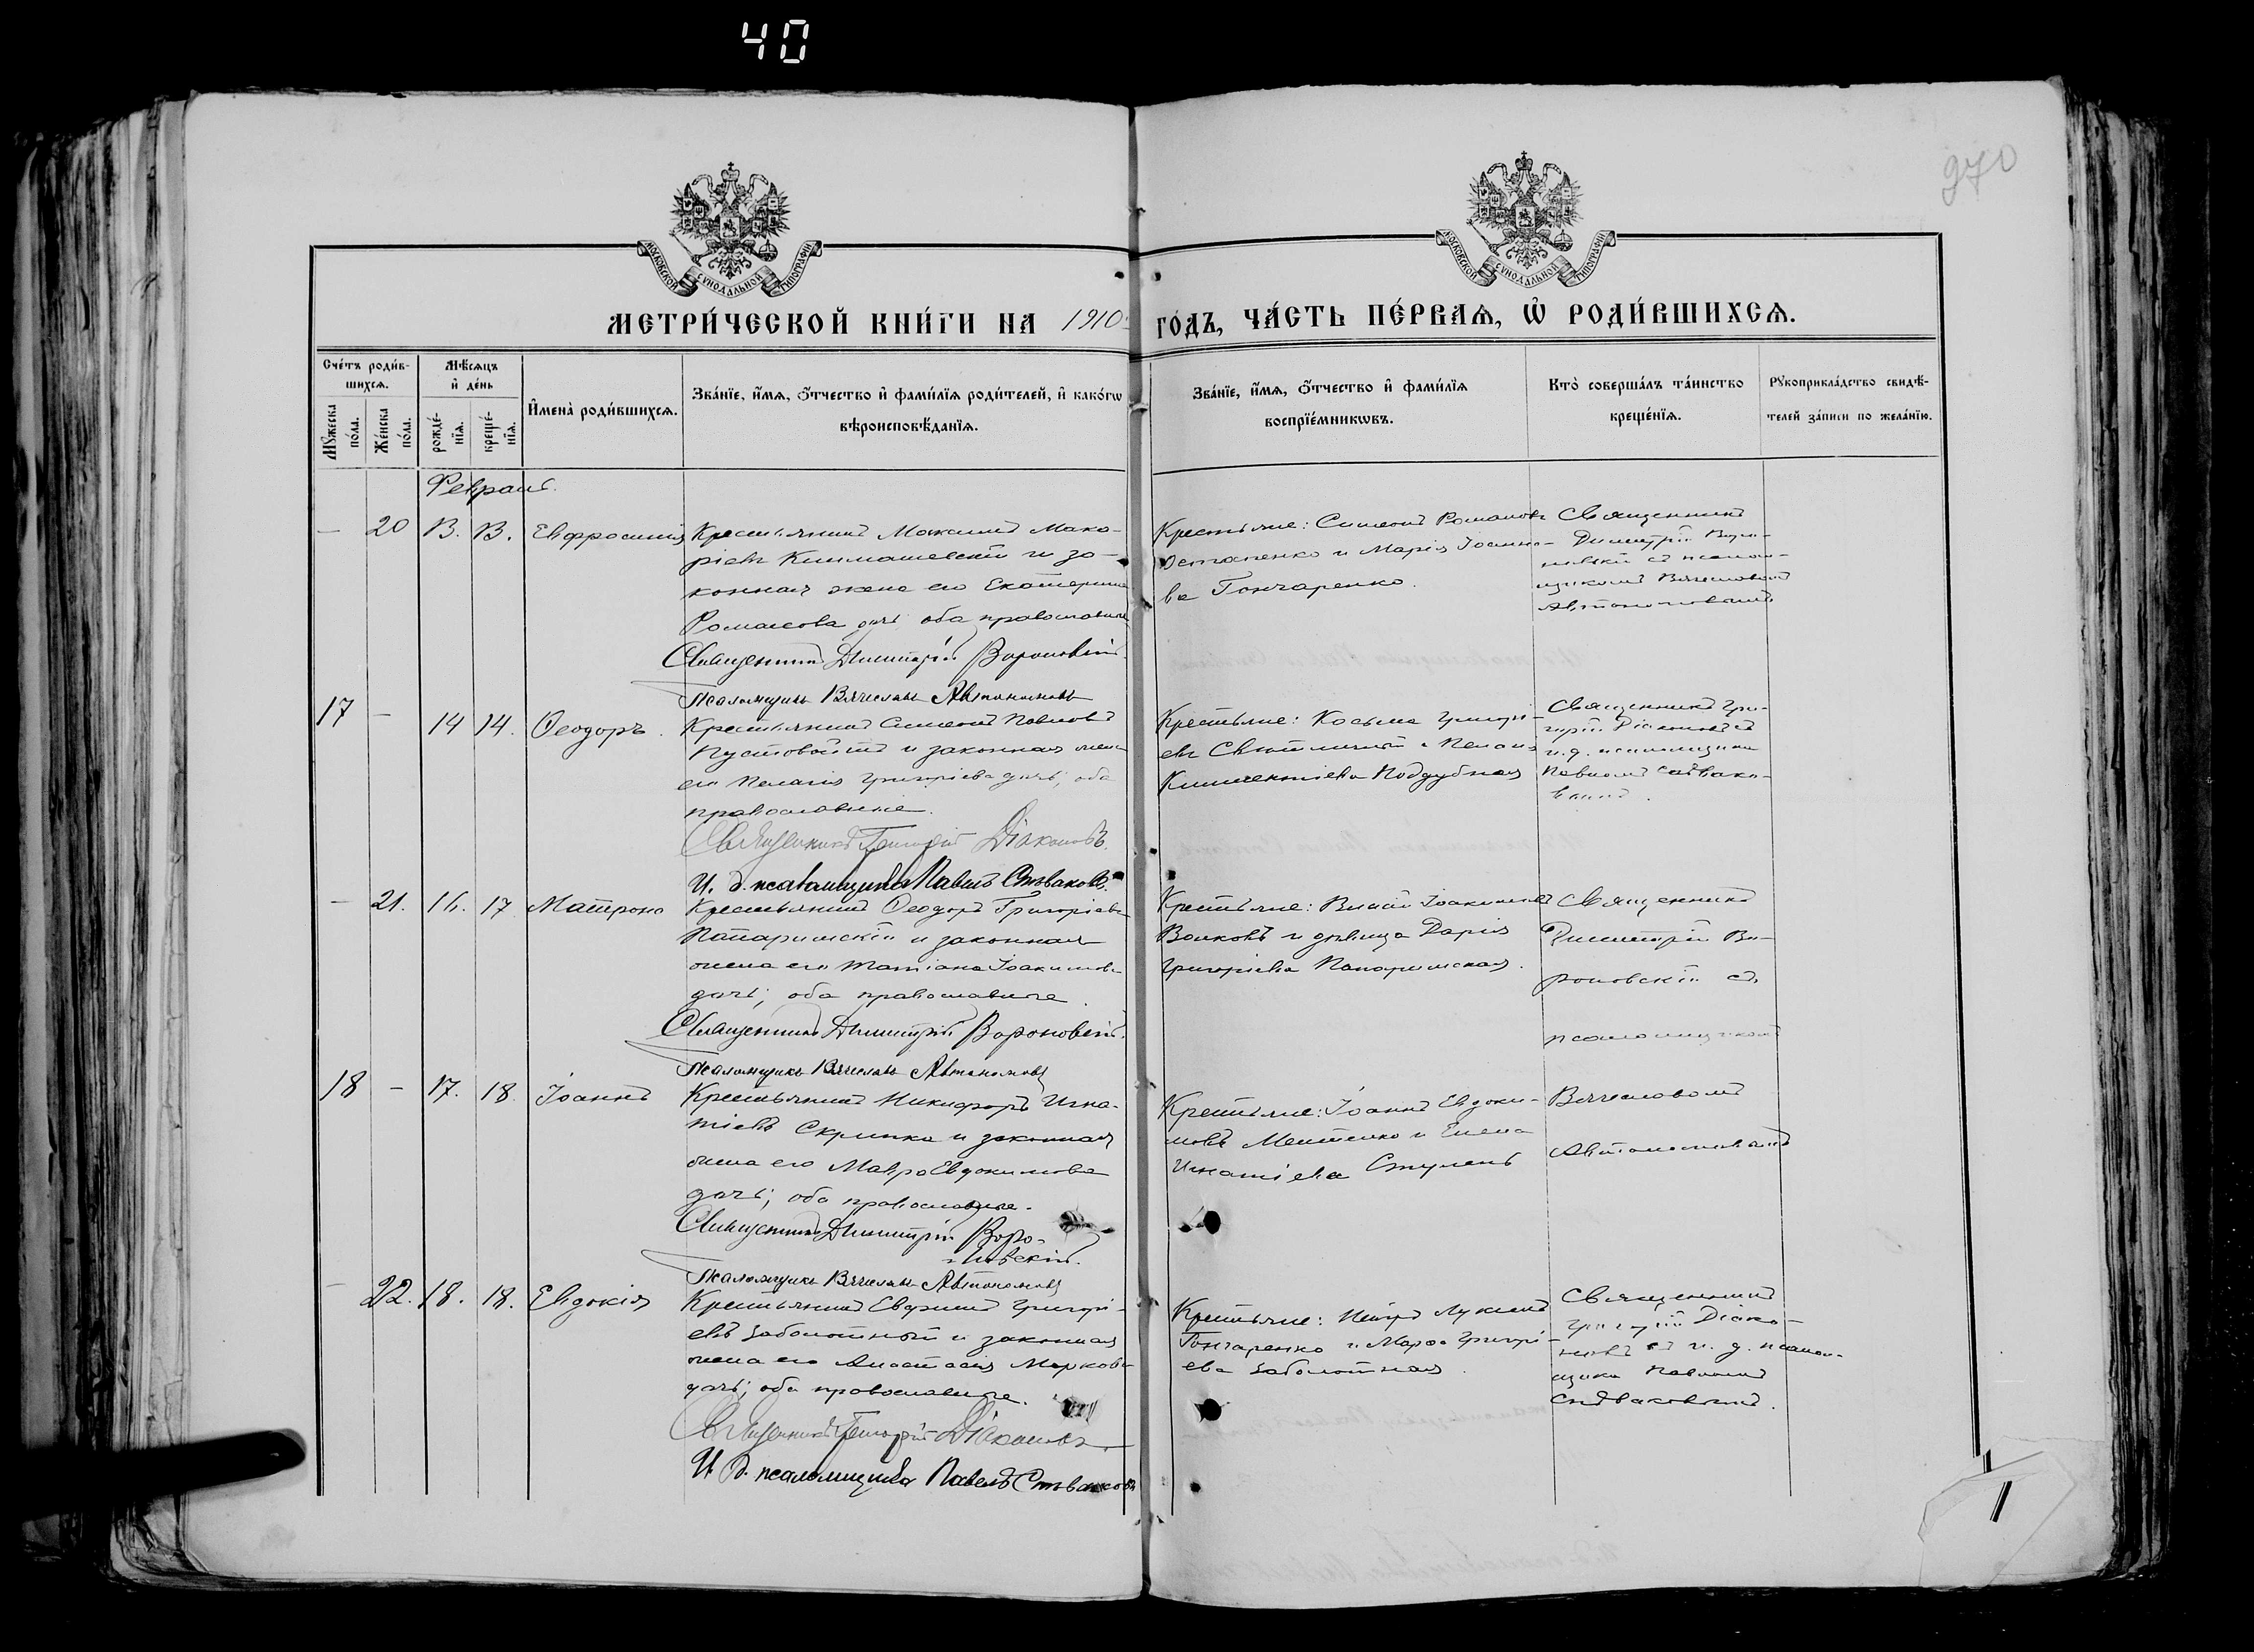 40
270
МОСКОВСКОЙ СѴНОДАЛЬНОЙ ТИПОГРАФІИ
МОСКОВСКОЙ СѴНОДАЛЬНОЙ ТИПОГРАФІИ
МЕТРИ́ЧЕСКОЙ КНИ́ГИ НА 1910 ГО́ДЪ, ЧА́СТЬ ПЕ́РВАѦ, Ѡ҆ РОДИ́ВШИХСѦ.
Сче́тъ роди́в-
шихсѧ.
Мꙋ́жеска
по́ла.
Же́нска
по́ла.
Мѣ́сѧцъ
и҆ де́нь
рожде́-
нїѧ.
креще́-
нїѧ.
И҆мена̀ роди́вшихсѧ.
Зва́нїе, и҆́мѧ, ѻ҆́тчество и҆ фами́лїѧ роди́телей, и҆ како́гѡ
вѣроисповѣ́данїѧ.
Зва́нїе, и҆́мѧ, ѻ҆́тчество и҆ фами́лїѧ
воспрїе́мникѡвъ.
Кто̀ соверша́лъ та́инство
креще́нїѧ.
Рꙋкоприкла́дство свидѣ́-
телей за́писи по жела́нїю.
Февраль.
— 20 13. 13. Евфросинія
Крестьянинъ Максимъ Мака-
ріевъ Климашевскій и за-
конная жена его Екатерина
Романова дочь, оба православные
Священникъ Димитрій Вороновскій.
Псаломщикъ Вячеславъ Автономовъ
Крестьяне: Симеонъ Романовъ
Остапенко и Марія Іоанно-
ва Гончаренко.
Священникъ
Димитрій Воро-
новскій съ псалом-
щикомъ Вячеславомъ
Автономовымъ
17 — 14 14. Ѳеодоръ.
Крестьянинъ Симеонъ Павловъ
Пустовойтъ и законная жена
его Пелагія Григоріева дочь, оба
православные.
Священникъ Григорій Діаконовъ.
И. д. псаломщика Павелъ Стваковъ.
Крестьяне: Косьма Григорі-
евъ Свѣтличный и Пелагія
Климентіева Поддубная
Священникъ Гри-
горій Діаконовъ съ
и. д. псаломщика
Павломъ
— 21. 16. 17 Матрона
Крестьянинъ Ѳеодоръ Григоріевъ
и законная
жена его Татіана Іоакимова
дочь; оба православные.
Священникъ Димитрій Вороновскій.
Псаломщикъ Вячеславъ Автономовъ
Крестьяне: Іоакимовъ
Волковъ и дѣвица Дарія
Григоріева
Священникъ
Димитрій Во-
роновскій съ
псаломщикомъ
Вячеславомъ
Автономовымъ
18 — 17. 18. Іоаннъ
Крестьянинъ Никифоръ Игна-
тіевъ Скрипка и законная
жена его Мавра Евдокимова
дочь; оба православные.
Священникъ Димитрій Воро-
новскій.
Псаломщикъ Вячеславъ Автономовъ
Крестьяне: Іоаннъ Евдоки-
мовъ и Елена
Игнатіева Ступень
— 22. 18. 18. Евдокія
Крестьянинъ Евфимій Григорі-
евъ Заболотный и законная
жена его Анастасія Маркова
дочь; оба православные.
Священникъ Григорій Діаконовъ
И. д. псаломщика Павелъ Стваковъ
Крестьяне: Петръ Лукинъ
Гончаренко и Марѳа Григорі-
ева Заболотная.
Священникъ
Григорій Діако-
новъ съ и. д. псалом-
щика Павломъ
Стваковымъ.